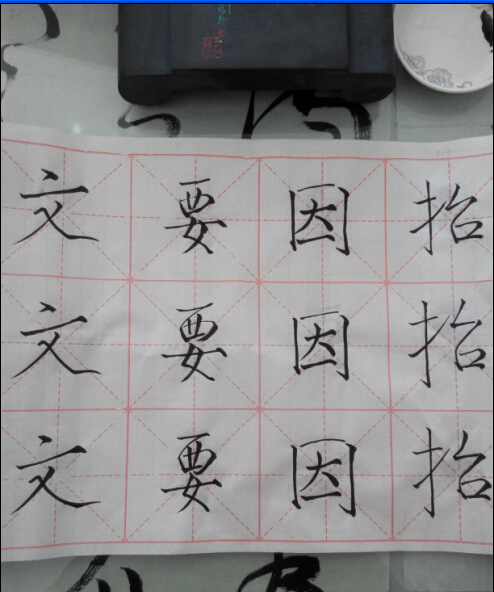 文 要 因 抬
文 要 因 抬
文 要 因 抬